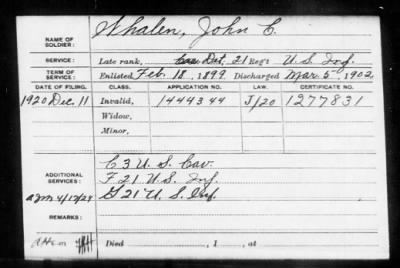 NAME OF SOLDIER: Whalen, John C.
SERVICE: Late rank, Det, 21 Reg't U. S. Inf.
TERM OF SERVICE: Enlisted Feb. 18, 1899 Discharged Mar. 5, 1902.
DATE OF FILING. CLASS. APPLICATION NO. LAW. CERTIFICATE NO.
1920 Dec. 11 Invalid, 1444344 J/20 1277831
Widow,
Minor,
C 3 U. S. Cav.
ADDITIONAL SERVICES: F 21 U. S. Inf.
G 21 U. S. Inf.
REMARKS:
Died , 1 , at